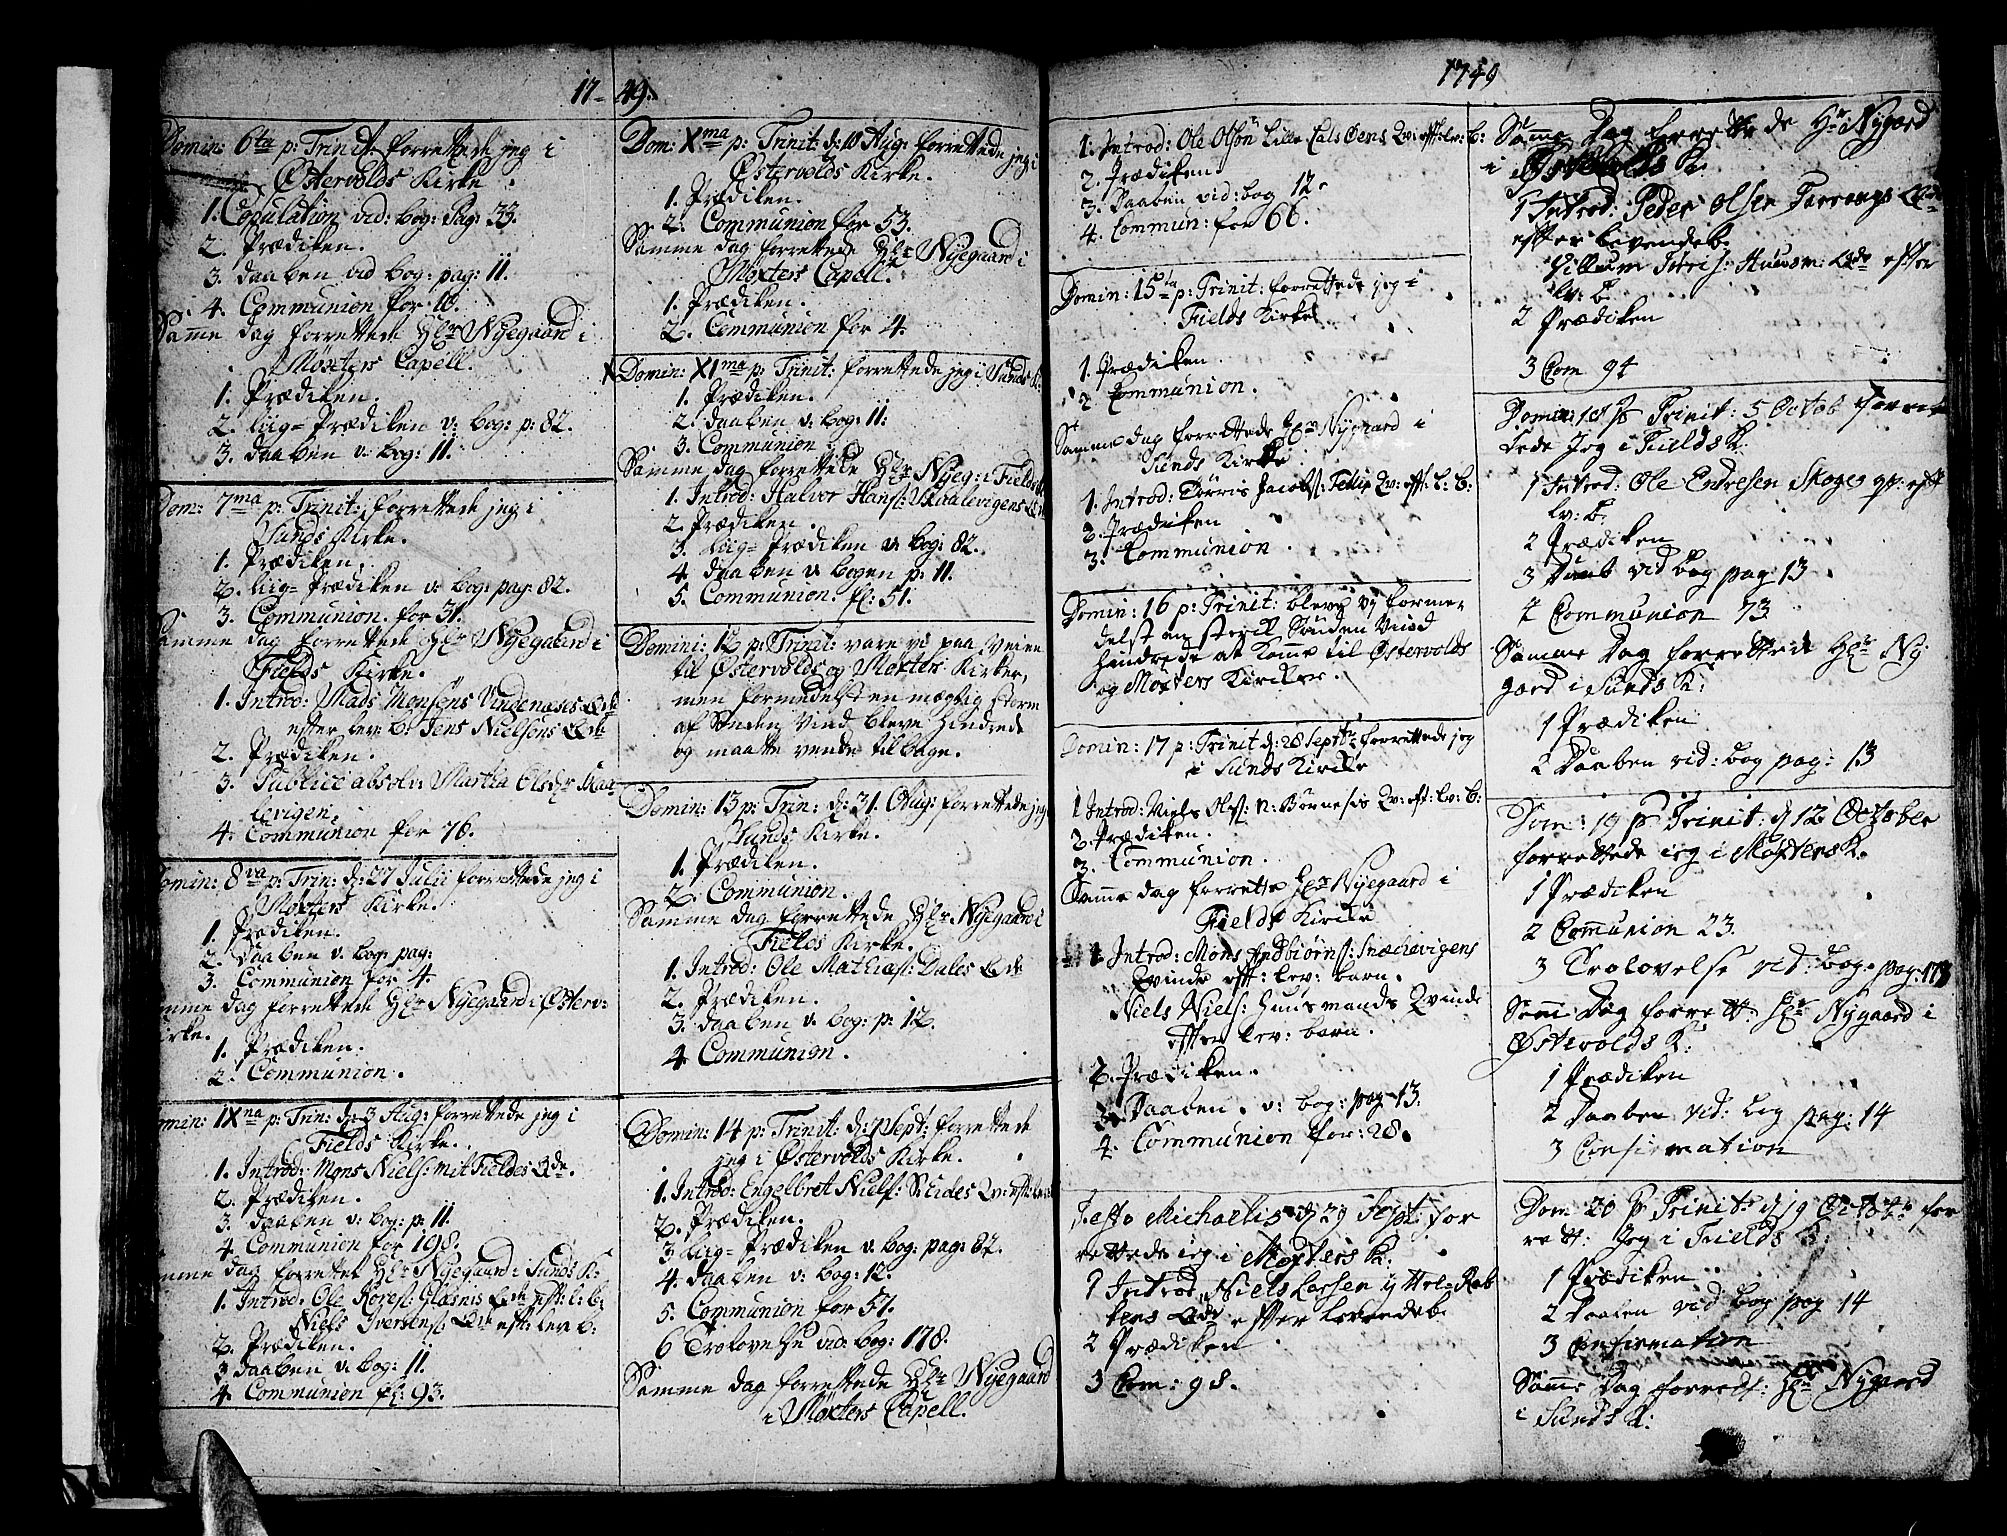 17-49.
Domin: 6ta p: Trinit: forrettede jeg i
Østervolds Kirke.
1. Copulation vid: bog: Pag: 33.
2. Prædiken.
3. daaben vid bog: pag: 11.
4. Communion for 10.
Samme dag forrettede Hr Nyegaard i
Møxters Capell.
1. Prædiken.
2. liig=Prædiken v: bog: p: 82.
3. daaben v: bog: 11.
Dom: 7ma p: Trinit: forrettede jeg i
Sunds Kirke.
1. Prædiken.
2. liig=Prædiken v: bog: pag: 82.
3. Communion. for 31.
Samme dag forrettede Hr Nyegaard i
Fields Kirke.
1. Introd: Mads Monsens Vindenæses
efter lev: b: Jens Nielsøns
2. Prædiken.
3. Publice absolv: Martha Olsdr Skaa-
levigen.
4. Communion for 76.
Domin: 8va p: Trin: d: 27 Julii forrettede jeg i
Møxters Kirke.
1. Prædiken.
2. Daaben v: bog: pag:
3. Communion for 4.
Samme dag forrettede Hr Nyegaard i Østerv:
Kirke.
1. Prædiken.
2. Communion.
Domin: IXna p: Trin: d: 3 Aug: forrettede jeg i
Fields Kirke.
1. Introd: Mons Niels: Mitfieldes
2. Prædiken.
3. daaben v: bog: p: 11.
4. Communion for 198.
Samme dag forrettet Hr Nyegaard i Sunds K:
1. Introd. Ole eft: l: b:
Niels Iversens: eft: lev b:
2. Prædiken.
3 daaben v: bog: 11.
4. Communion f: 93.
Dom: Xma p: Trinit: d: 10 Aug: forrettede jeg i
Østervolds Kirke.
1. Prædiken.
2. Communion for 53.
Samme dag forrettede Hr Nyegaard i
Møxters Capell.
1. Prædiken.
2. Communion for 4.
X Domin: XIma p: Trinit: forrettede jeg i Sunds K:
1. Prædiken.
2. daaben v: bog: 11.
3. Communion.
Samme dag forrettede Hr Nyeg: i Fields K:
1. Introd: Halvor Hans: Skaalevigens
2. Prædiken.
3. liig=Prædiken v: bog: 82.
4. daaben v: bogen p: 11.
5. Communion. f: 51.
Domini: 12 p: Trinit: vare vi paa Veien
til Østervolds og Møxters Kirker,
men formedelst en mægtig storm
af Sønden Vind bleve hindrede
og maatte vende tilbage.
Domin: 13 p: Trin: d: 31. Aug: forrettede jeg i
Sunds Kirke.
1. Prædiken.
2. Communion.
Samme dag forrettede Hr. Nyegaard i
Fields Kirke.
1. Introd: Ole Mathias: Dales
2. Prædiken.
3. daaben v: bog: p: 12.
4. Communion.
Domin: 14 p: Trinit: d: 7 Sept: forrettede
jeg i Østervolds Kirke.
1. Introd: Engelbret Niels:
2. Prædiken.
3. liig=Prædiken v: bog: pag: 82.
4. daaben v: bog: 12.
5. Communion for 51.
6 Trolovelse vid: bog: 178.
Samme dag forrettede Hr Nyegaard
i Møxters Capell.
1749
1. Introd: Ole Olsøn Lille
2. Prædiken.
3. Daaben vid: bog 12.
4. Commun: for 66.
Domin: 15ta p: Trinit: forrettede jeg i
Fields Kirke
1. Prædiken
2 Communion.
Samme dag forrettede Hr Nygaard i
Sunds Kirke
1. Introd: Jacobs: eff: l: b:
2. Prædiken
3. Communion.
Domin: 16 p: Trinit: bleve vj forme-
delst en sterck Sønden Vind
hindrede at komme til Østervolds
og Møxters Kircker.
Domin: 17 p: Trinit d: 28 Septbr forrettede jeg
i Sunds Kircke
1 Introd: Niels Ols: N: Børnesis eft: lv: b:
2. Prædiken.
3. Communion.
Samme dag forrette Hr Nyegaard i
Fields Kircke
1. Introd: Mons
Qvinde eff: lev: barn.
Niels Niels: Huusmands Qvinde
efter lev: barn.
2. Prædiken.
3. Daaben. v: bog: pag 13.
4. Communion for: 28.
Festo Michaelis d 29 Sept: for
rettede ieg i Møxters K:
1 Introd. Niels Larsen
efter levendeb:
2 Prædiken
3 Com: 98.
Samme Dag forrettede Hr Nygaard
i Østervolds K.
1 Introd: Peder Olsen
efter levendeb.
Huusm: efter
lv: b.
2 Prædiken
3 Com 94
Domin: 18 p Trinit: 5 Octob forret-
tede Jeg i Fields K.
1 Introd: Ole Endresen Skoges
lv: b.
2 Prædiken
3 Daab vid bog pag: 13.
4 Communion 73
Samme Dag forrettede Hr Ny-
gard i Sunds K:
1 Prædiken
2 Daaben vid: bog pag: 13
Dom: 19 p Trinit: d 12 October
forrettede ieg i Møxters K.
1 Prædiken
2 Communion 23.
3 Trolovelse vid: bog. pag: 178
Samme Dag forrett: Hr Nygaard i
Østevolds K:
1 Prædiken
2 Daaben vid: bog pag: 14
3 Confirmation
Dom 20 p Trinit: d 19 Octobr for
rett: Jeg i Fields K:
1 Prædiken
2 Daaben vid bog pag 14
3 Confirmation
Samme Dag forrett: Hr Nygaard
i Sunds K: